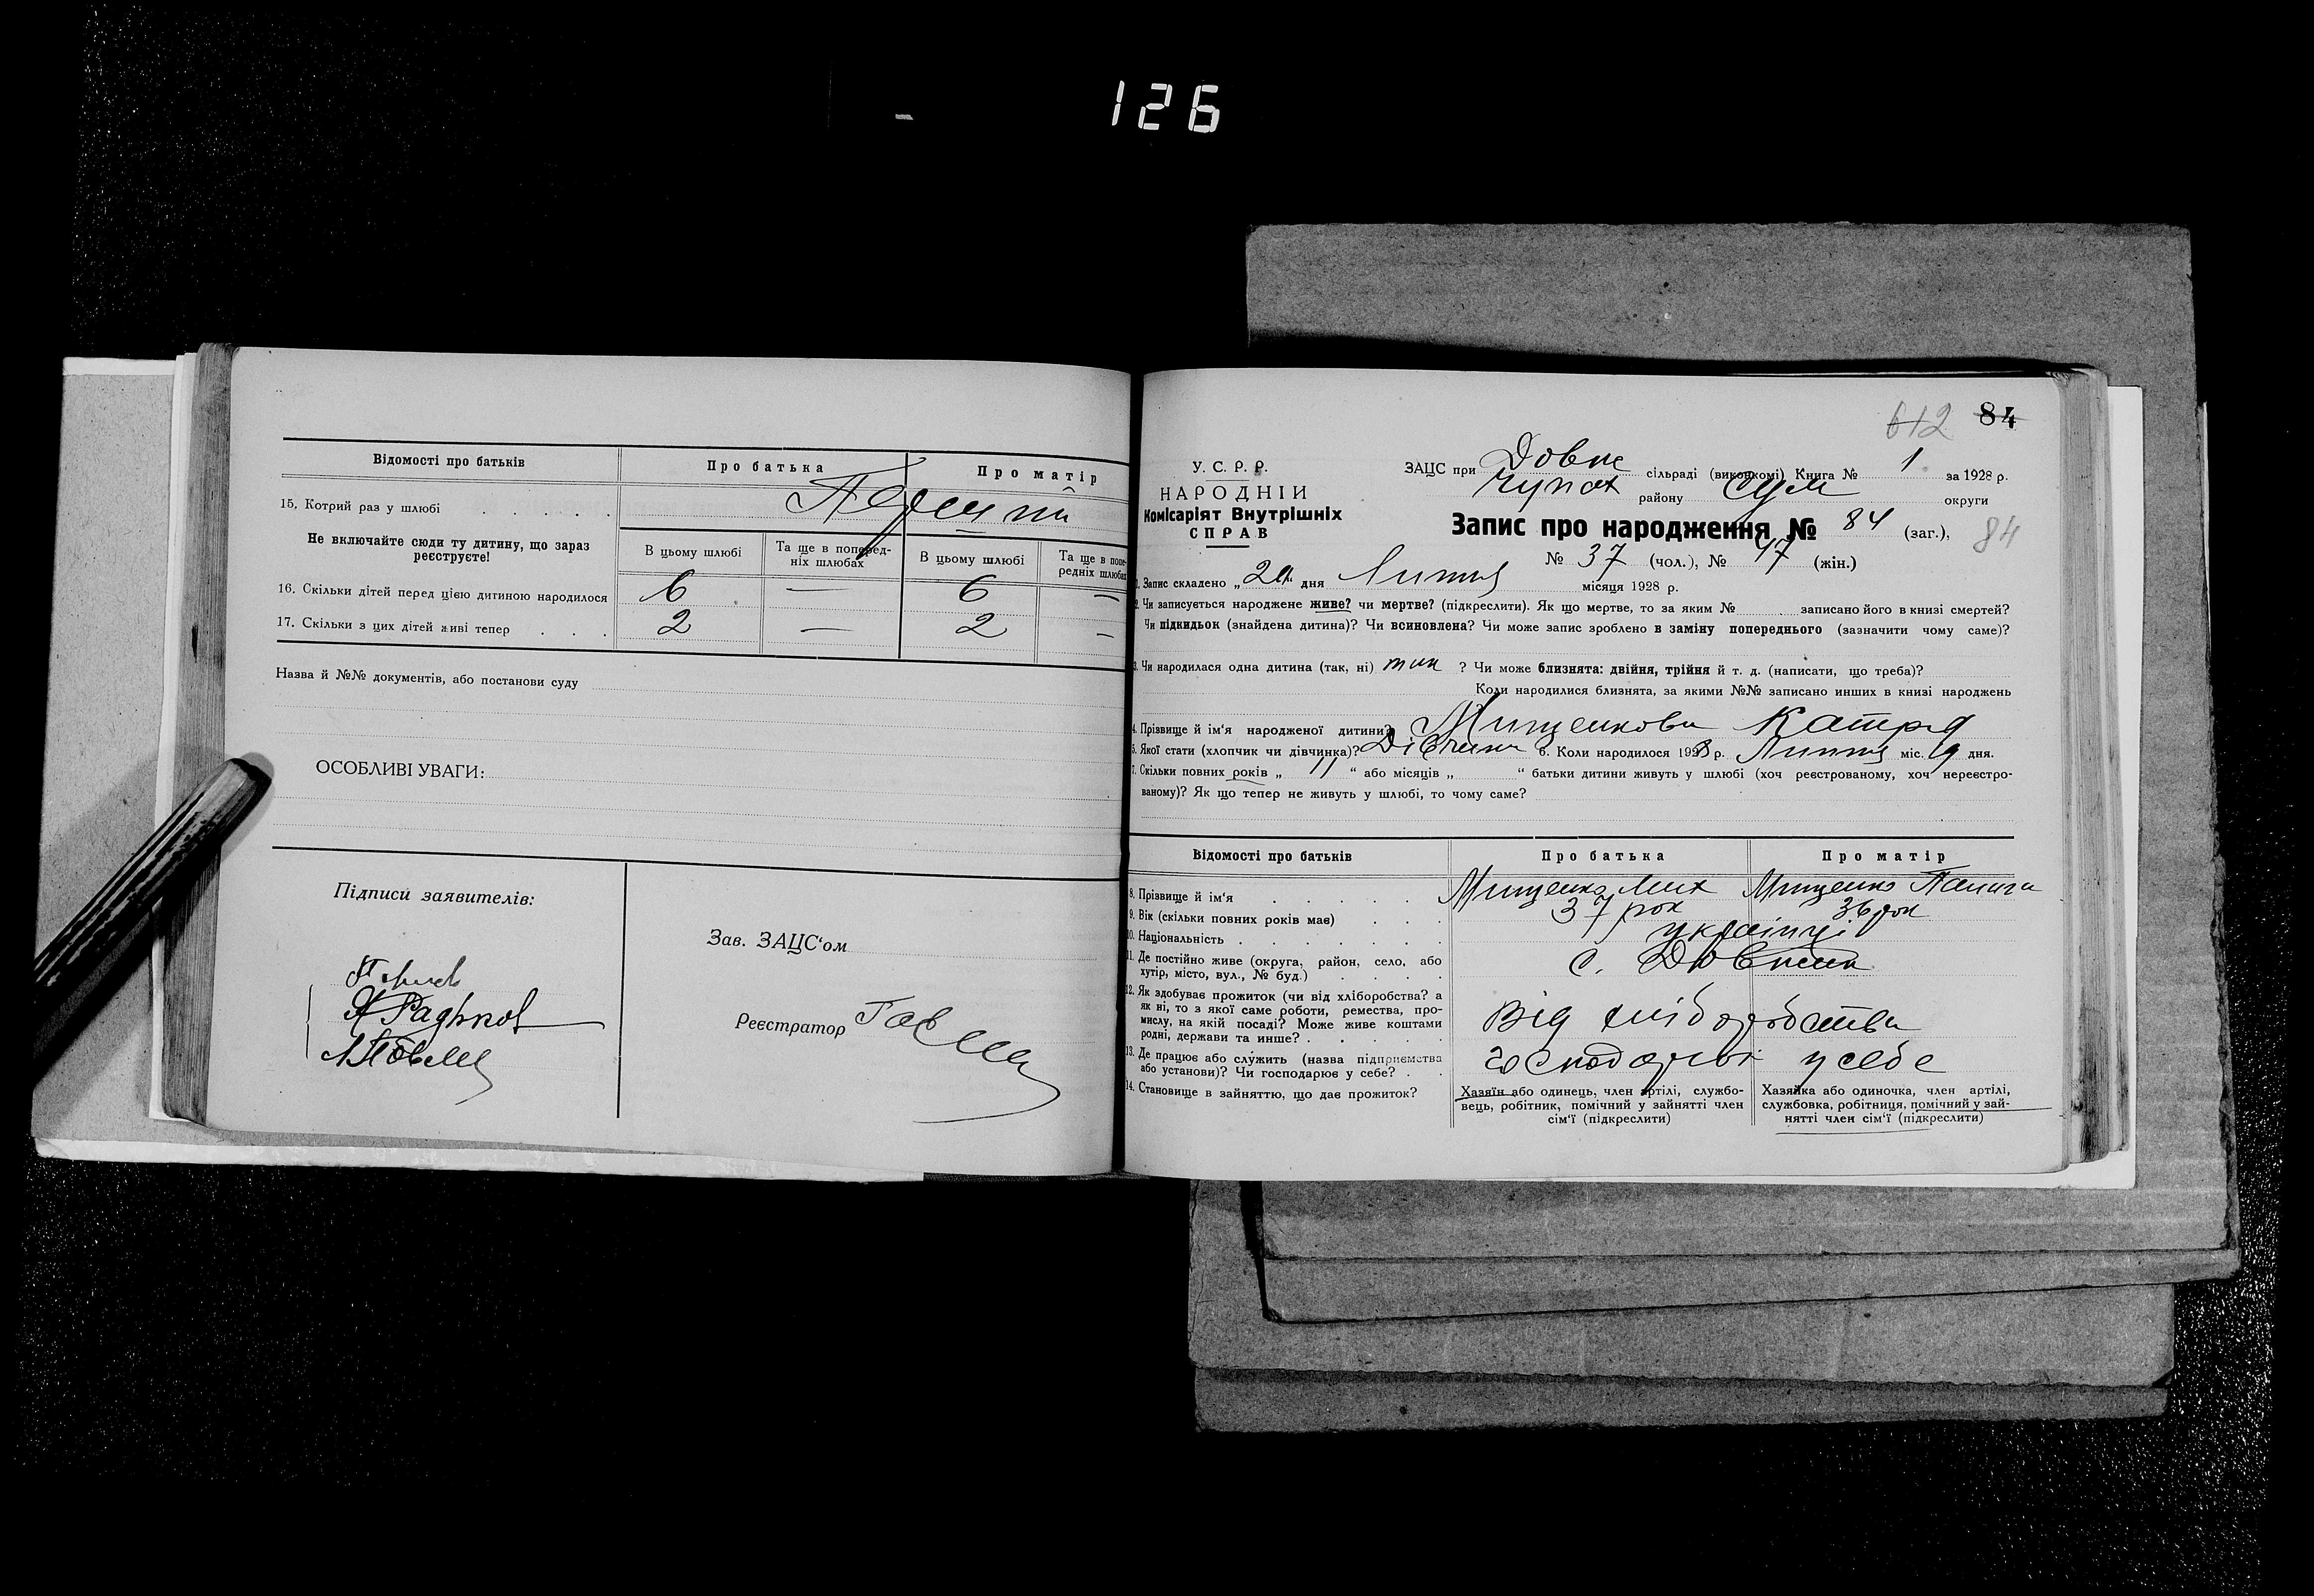 126
Відомості про батьків
Про батька
Про матір
15. Котрий раз у шлюбі
Перший
Не включайте сюди ту дитину, що зараз
реєструєте!
В цьому шлюбі
Та ще в поперед-
ніх шлюбах
В цьому шлюбі
Та ще в попе-
редніх шлюбах
16. Скільки дітей перед цією дитиною народилося 6 — 6 —
17. Скільки з цих дітей живі тепер 2 — 2 —
Назва й №№ документів, або постанови суду
ОСОБЛИВІ УВАГИ:
Підписи заявителів:
Зав. ЗАЦС'ом
Реєстратор
612 84
У. С. Р. Р.
НАРОДНІЙ
Комісаріят Внутрішніх
СПРАВ
ЗАЦС при Довж сільраді (виконкомі) Книга № 1 за 1928 р.
Чупах району Сум округи
Запис про народження № 84 (заг.), 84
№ 37 (чол.), № 47 (жін.)
1. Запис складено „20" дня Липня місяця 1928 р.
2. Чи записується народжене живе? чи мертве? (підкреслити). Як що мертве, то за яким № записано його в книзі смертей?
Чи підкидьок (знайдена дитина)? Чи всиновлена? Чи може запис зроблено в заміну попереднього (зазначити чому саме)?
3. Чи народилася одна дитина (так, ні) так ? Чи може близнята: двійня, трійня й т. д. (написати, що треба)?
Коли народилися близнята, за якими №№ записано инших в книзі народжень
4. Прізвище й ім'я народженої дитини? Мищенкова Катря
5. Якої стати (хлопчик чи дівчинка)? Дівчина 6. Коли народилося 1928 р. Липня міс. 19 дня.
7. Скільки повних років „ 11 " або місяців „ " батьки дитини живуть у шлюбі (хоч реєстрованому, хоч нереєстро-
ваному)? Як що тепер не живуть у шлюбі, то чому саме?
Відомості про батьків
Про батька
Про матір
8. Прізвище й ім'я Мищенко Мих Мищенко
9. Вік (скільки повних років має) 37 рок 36 рок
10. Національність українці
11. Де постійно живе (округа, район, село, або
хутір, місто, вул., № буд.)
с. Довжик
12. Як здобуває прожиток (чи від хліборобства? а
як ні, то з якої саме роботи, ремества, про-
мислу, на якій посаді? Може живе коштами
родні, держави та инше?
Від хліборобства
13. Де працює або служить (назва підприємства
або установи)? Чи господарює у себе?
господарює у себе
14. Становище в зайняттю, що дає прожиток?
Хазяїн або одинець, член артілі, службо-
вець, робітник, помічний у зайнятті член
сім'ї (підкреслити)
Хазяйка або одиночка, член артілі,
службовка, робітниця, помічний у зай-
нятті член сім'ї (підкреслити)